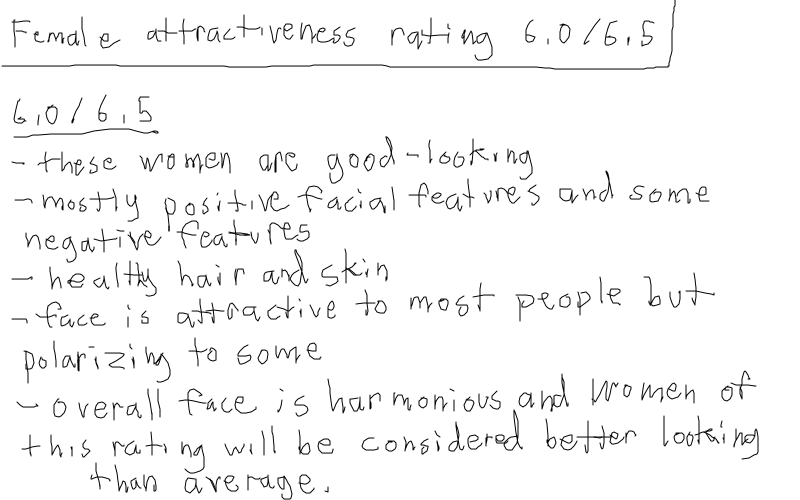 Female attractiveness rating 6.0/6.5
6.0/6.5
- these women are good-looking
- mostly positive facial features and some
negative features
- healthy hair and skin
- face is attractive to most people but
polarizing to some
- overall face is harmonious and women of
this rating will be considered better looking
than average.